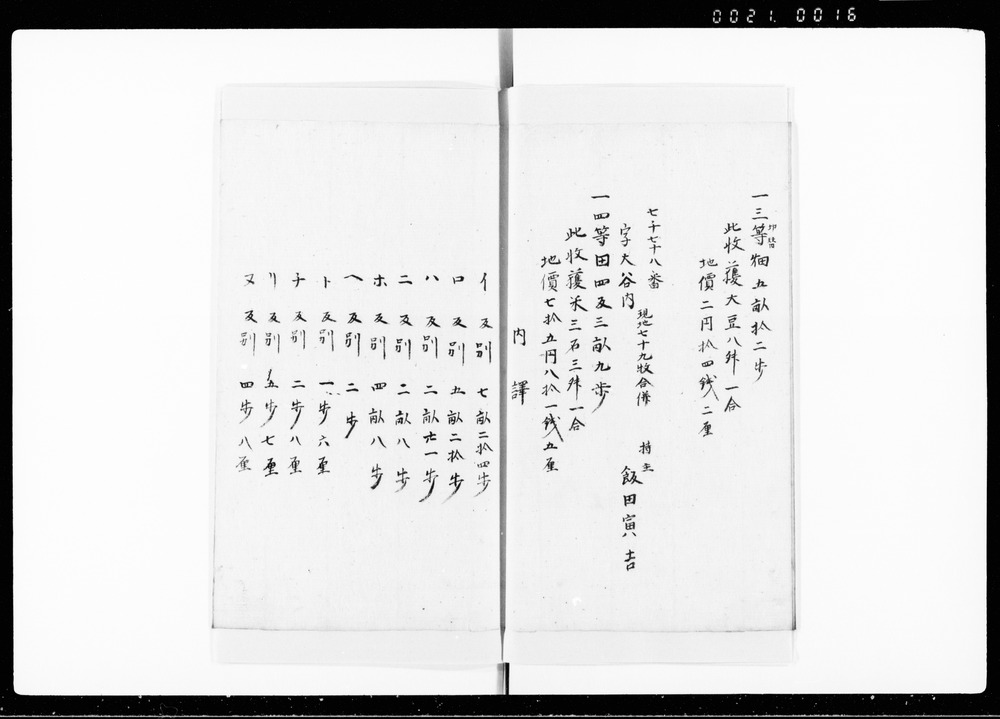 0021.0016
一三等畑五畝拾二歩
此收穫大豆八舛一合
地價二円拾四銭二厘
七千七十八番
字大谷内
現地七十九牧合併
持主
飯田寅吉
一四等田四反三畝九歩
此收穫米三石三舛一合
地價七拾五円八拾一銭五厘
内譯
イ反別七畝二拾四歩
ロ反別五畝二拾歩
ハ反別二畝廿一歩
ニ反別二畝八歩
ホ反別四畝八歩
ヘ反別二歩
ト反別一歩六厘
チ反別二歩八厘
リ反別五歩七厘
ヌ反別四歩八厘